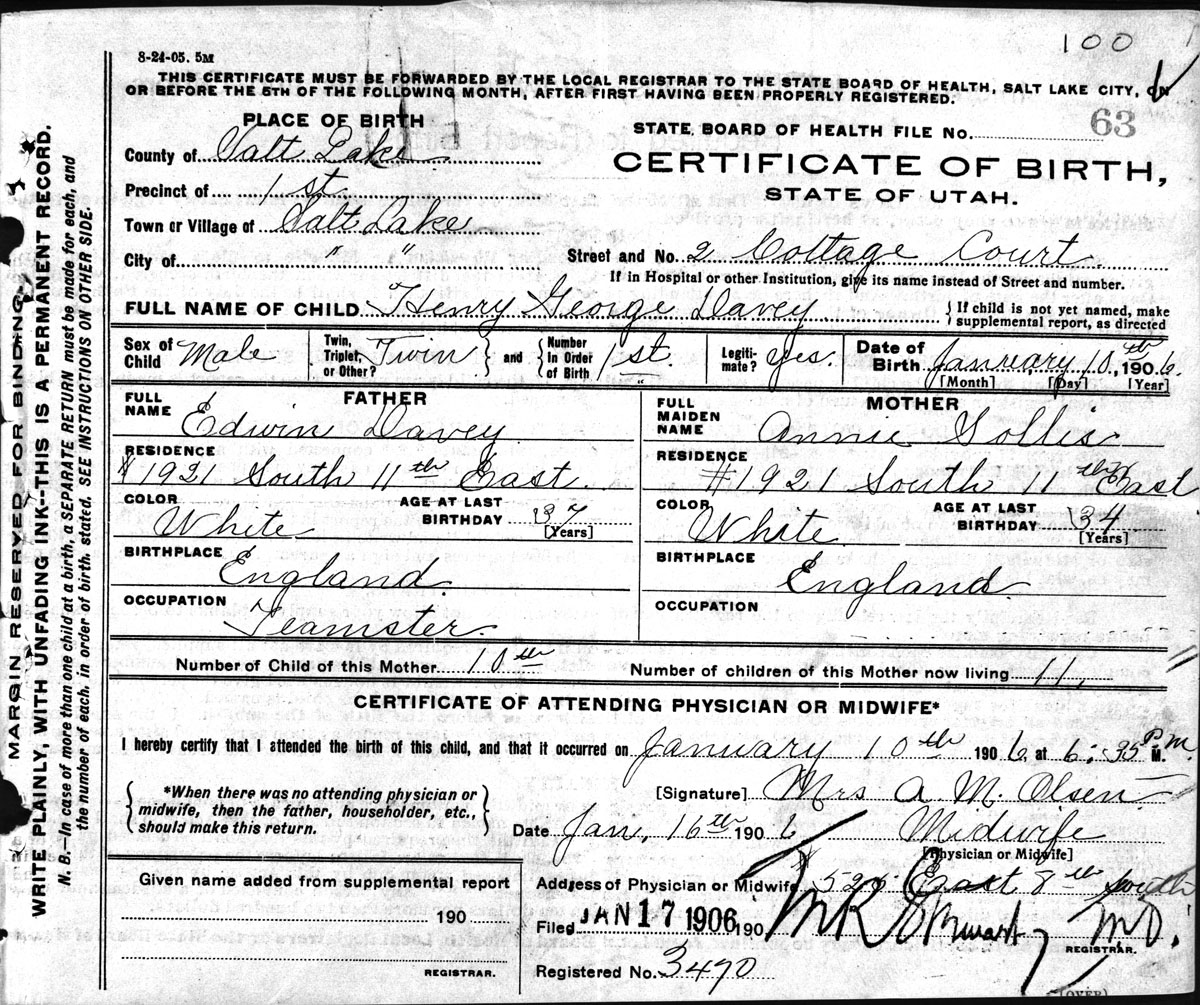 100
8-24-05. 5M
THIS CERTIFICATE MUST BE FORWARDED BY THE LOCAL REGISTRAR TO THE STATE BOARD OF HEALTH, SALT LAKE CITY, ON
OR BEFORE THE 5TH OF THE FOLLOWING MONTH, AFTER FIRST HAVING BEEN PROPERLY REGISTERED.
PLACE OF BIRTH
STATE BOARD OF HEALTH FILE No. 63
County of Salt Lake
CERTIFICATE OF BIRTH,
Precinct of 1st
STATE OF UTAH.
Town or Village of Salt Lake
City of " "
Street and No. 2 Cottage Court.
If in Hospital or other Institution, give its name instead of Street and number.
FULL NAME OF CHILD Henry George Davey
{If child is not yet named, make
supplemental report, as directed
Sex of Child Male
Twin, Triplet, or Other? Twin
and Number in Order of Birth 1st.
Legiti-mate? yes.
Date of Birth January 10th, 1906.
[Month] [Day] [Year]
FATHER
FULL NAME Edwin Davey
RESIDENCE
#1921 South 11th East.
COLOR White
AGE AT LAST BIRTHDAY 37
[Years]
BIRTHPLACE
England.
OCCUPATION
Teamster.
MOTHER
FULL MAIDEN NAME Annie Sollis
RESIDENCE
#1921 South 11th East
COLOR White
AGE AT LAST BIRTHDAY 34
[Years]
BIRTHPLACE
England.
OCCUPATION
Number of Child of this Mother 10th
Number of children of this Mother now living 11,
CERTIFICATE OF ATTENDING PHYSICIAN OR MIDWIFE*
I hereby certify that I attended the birth of this child, and that it occurred on January 10th 1906, at 6:35 P.M.
*When there was no attending physician or
midwife, then the father, householder, etc.,
should make this return.
[Signature] Mrs A. M. Olsen.
Date Jan, 16th 1906
Midwife
[Physician or Midwife]
Given name added from supplemental report
190
REGISTRAR.
Address of Physician or Midwife East 8th South
Filed JAN 17 1906 190 M.D.
REGISTRAR.
Registered No. 3490
(OVER)
MARGIN RESERVED FOR BINDING.
WRITE PLAINLY, WITH UNFADING INK--THIS IS A PERMANENT RECORD.
N. B.—In case of more than one child at a birth, a SEPARATE RETURN must be made for each, and
the number of each, in order of birth, stated. SEE INSTRUCTIONS ON OTHER SIDE.